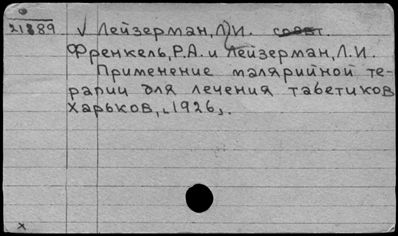 21889 √ Лейзерман, Л.И. соавт.
Френкель, Р.А. и Лейзерман, Л.И.
Применение малярийной те-
рапии для лечения табетиков
Харьков, 1926.
x